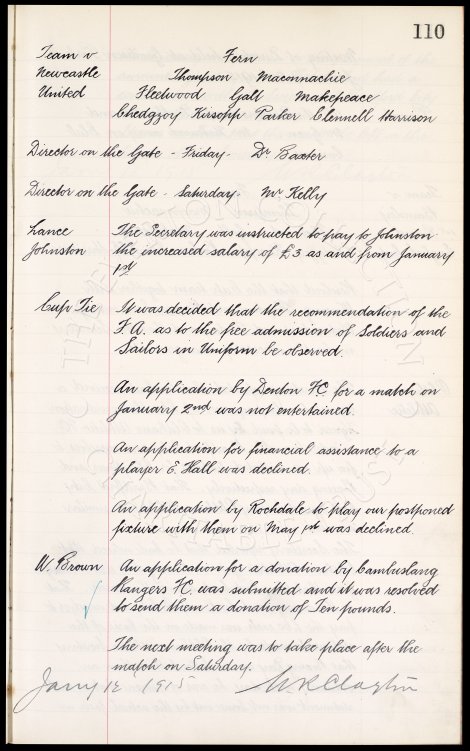 110
Team v Fern
Newcastle Thompson Maconnachie
United Fleetwood Galt Makepeace
Chedgzoy Kirsopp Parker Clennell Harrison
Director on the Gate - Friday - Dr Baxter
Director on the Gate - Saturday - Mr Kelly
Lance The Secretary was instructed to pay to Johnston
Johnston the increased salary of £3 as and from January
1st
Cup Tie It was decided that the recommendation of the
F.A. as to the free admission of Soldiers and
Sailors in Uniform be observed.
An application by Denton F.C. for a match on
January 2nd was not entertained.
An application for financial assistance to a
player E. Hall was declined.
An application by Rochdale to play our postponed
fixture with them on May 1st was declined.
W. Brown An application for a donation by Cambuslang
Rangers F.C. was submitted and it was resolved
to send them a donation of Ten pounds.
The next meeting was to take place after the
match on Saturday.
Jany 12 1915 W R Clayton